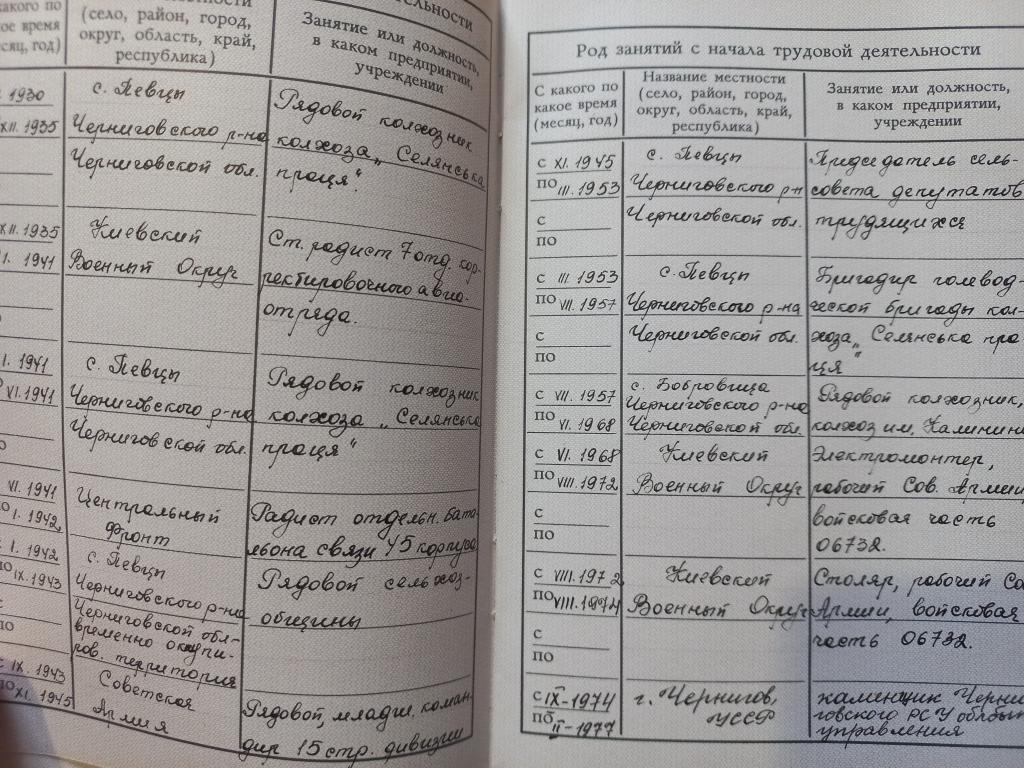 какого по
кое время
(месяц, год)
(село, район, город,
округ, область, край,
республика)
Занятие или должность,
в каком предприятии,
учреждении
1930
XII. 1935
с. Певцы
Черниговского р-на
Черниговской обл.
Рядовой колхозник
колхоза „Селянська
праця“.
XII. 1935
I. 1941
Киевский
Военный Округ
Ст. радист 7 отд. кор-
ректировочного авио-
отряда.
I. 1941
VI. 1941
с. Певцы
Черниговского р-на
Черниговской обл.
Рядовой колхозник
колхоза „Селянська
праця“
VI. 1941
по I. 1942
Центральный
фронт
Радист отдельн. бата-
льона связи 45 корпуса
с I. 1942
по IX. 1943
с. Певцы
Черниговского р-на
Черниговской обл-
временно окупи-
ров. территория
Рядовой сельхоз-
общины
с
по
с IX. 1943
по XI. 1945
Советская
Армия
Рядовой, младш. коман-
дир 15 стр. дивизии
Род занятий с начала трудовой деятельности
С какого по
какое время
(месяц, год)
Название местности
(село, район, город,
округ, область, край,
республика)
Занятие или должность,
в каком предприятии,
учреждении
с XI. 1945
по III. 1953
с
по
с. Певцы
Черниговского р-н
Черниговской обл.
Председатель сель-
совета депутатов
трудящихся
с III. 1953
по VII. 1957
с
по
с. Певцы
Черниговского р-на
Черниговской обл.
Бригадир полевод-
ческой бригады кол-
хоза „Селянська пра
ця“
с VII. 1957
по VI. 1968
с. Бобровица
Черниговского р-на
Черниговской обл.
Рядовой колхозник,
колхоз им. Калинина
с VI. 1968
по VIII. 1972
с
по
Киевский
Военный Округ
Электромонтер,
рабочий Сов. Армии
войсковая часть
06732.
с VIII. 1972
по VIII. 1974
с
по
Киевский
Военный Округ
Столяр, рабочий Со
Армии, войсковая
часть 06732.
с IX-1974
по II-1977
г. Чернигов,
УССР
каменщик Черни
говского РСУ облбыт
управления